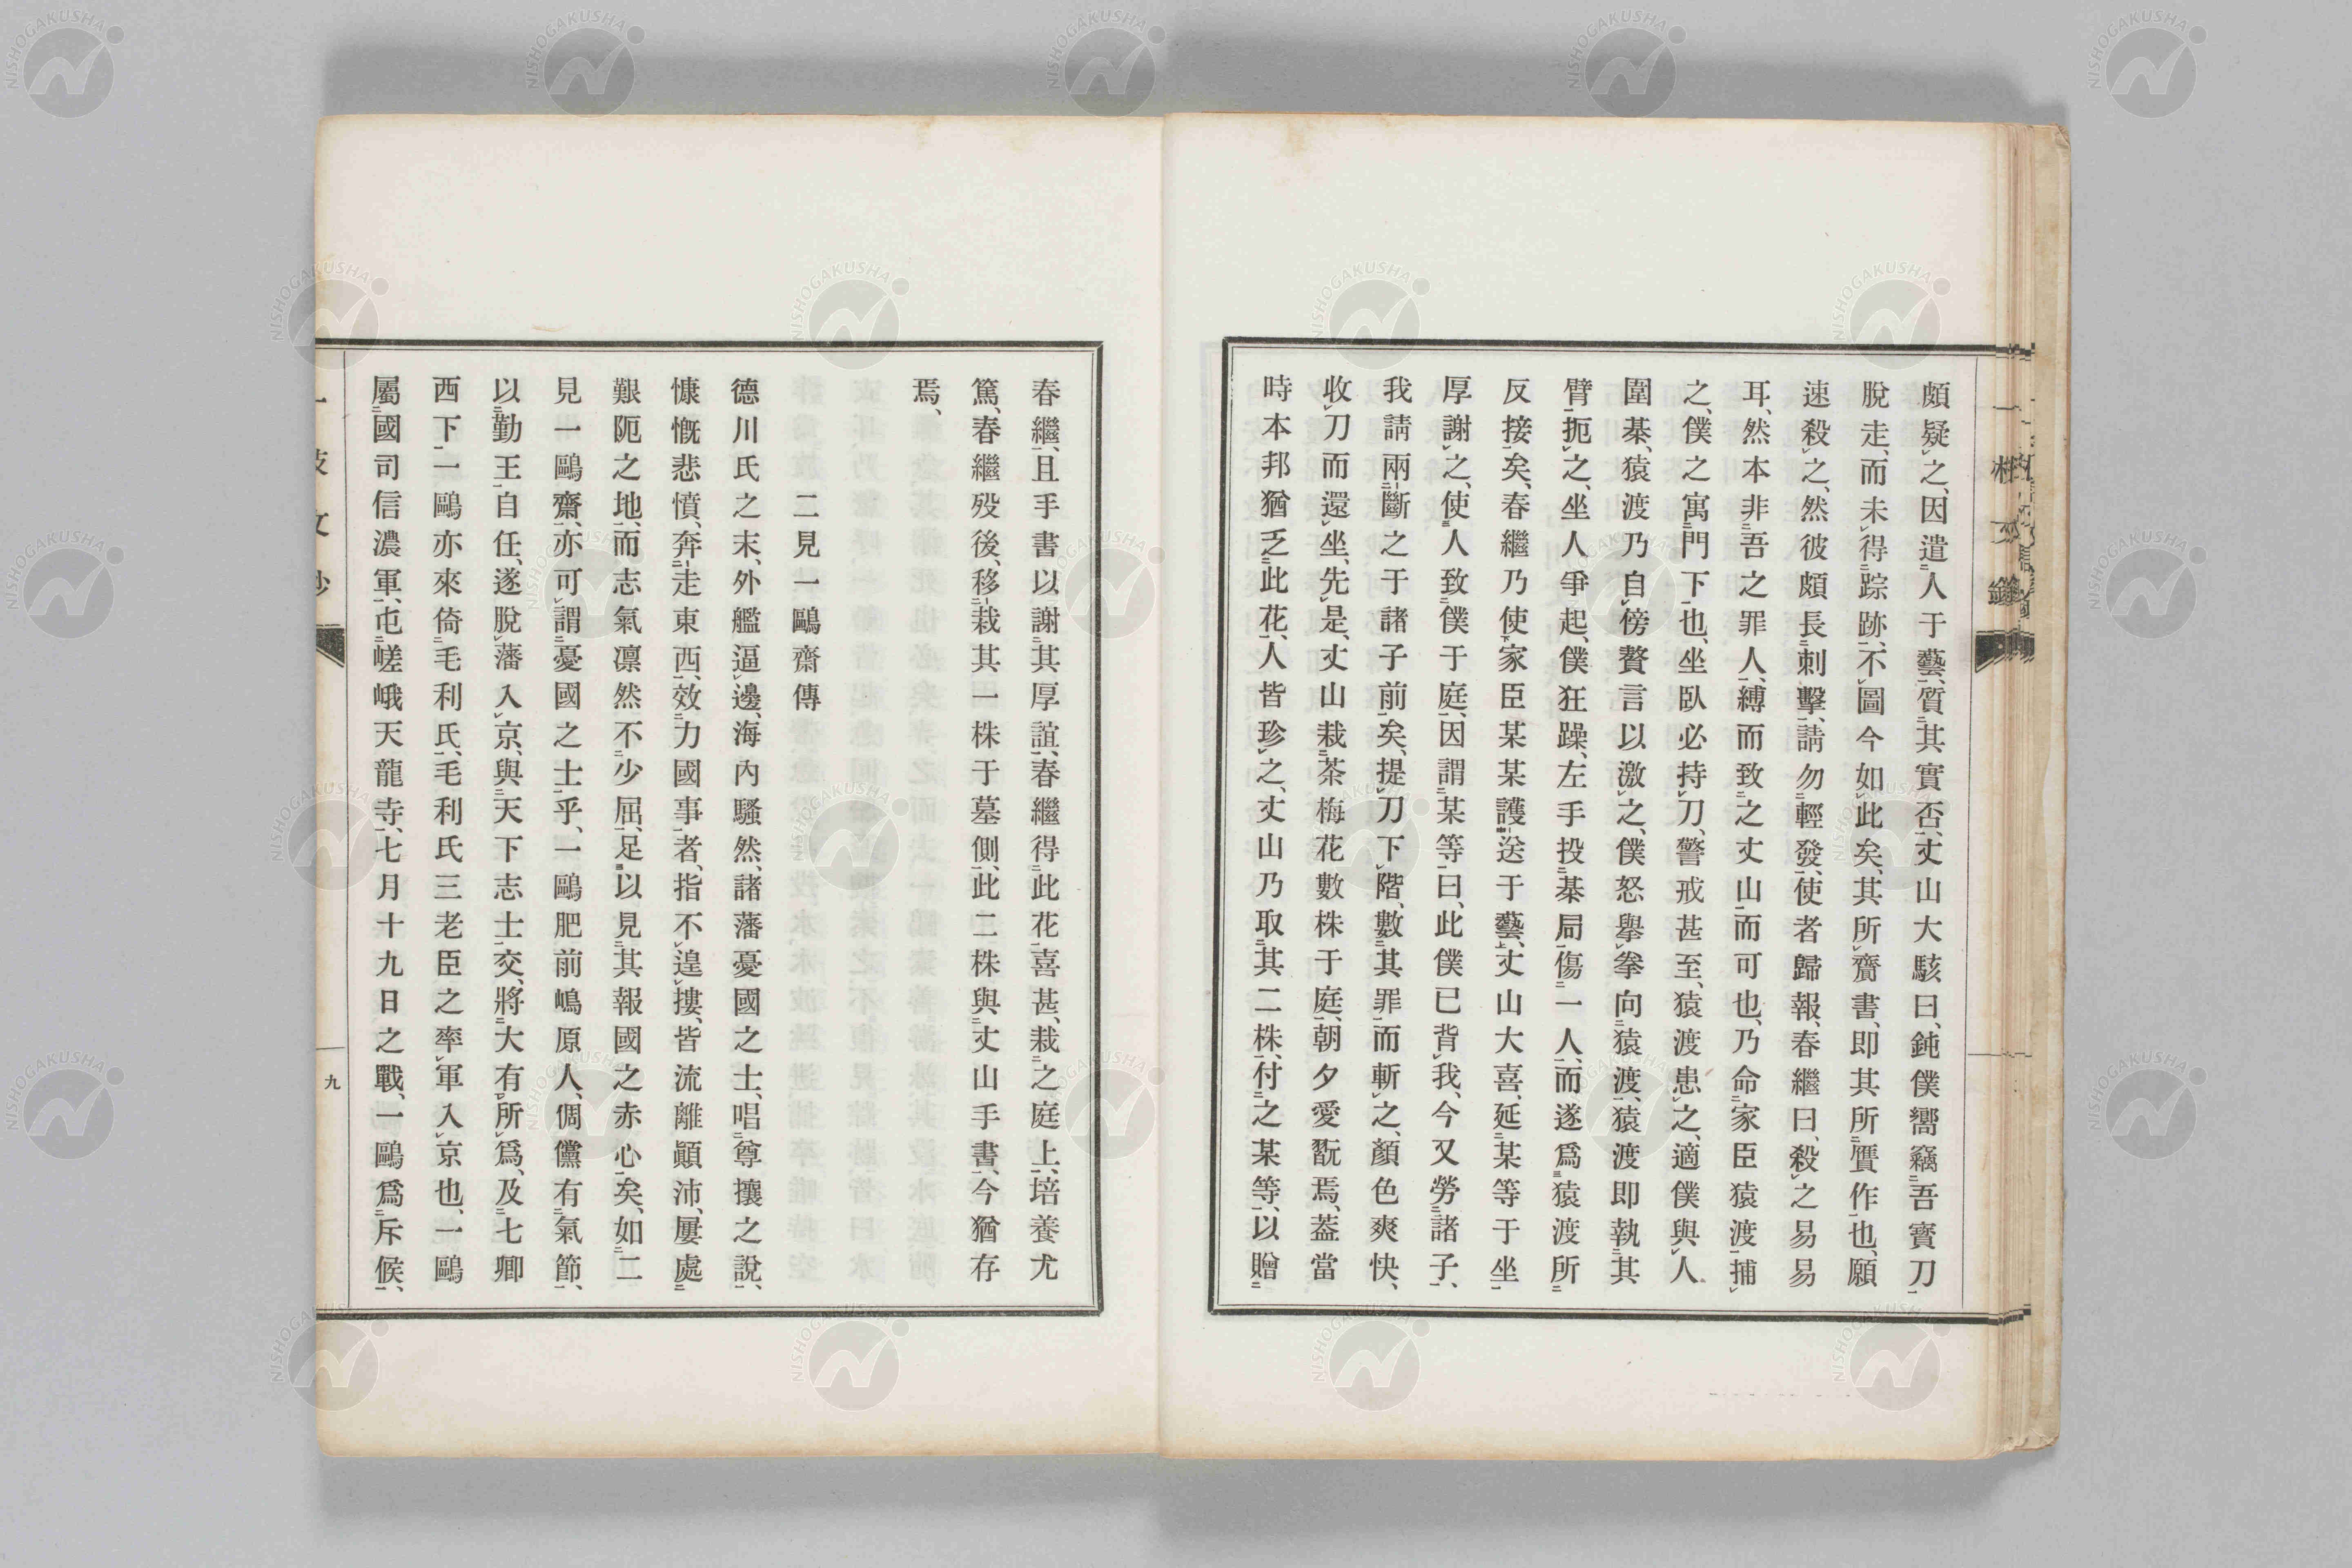 頗疑之、因遣人于藝、質其實否、丈山大駭曰、鈍僕嚮竊吾寶刀
脫走、而未得踪跡、不圖今如此矣、其所齎書、即其所贋作也、願
速殺之、然彼頗長刺擊、請勿輕發、使者歸報、春繼曰、殺之易易
耳、然本非吾之罪人、縛而致之丈山、而可也、乃命家臣猿渡捕
之、僕之寓門下也、坐臥必持刀、警戒甚至、猿渡患之、適僕與人
圍棊、猿渡乃自傍贅言以激之、僕怒擧拳向猿渡、猿渡即執其
臂扼之、坐人爭起、僕狂躁、左手投棊局傷一人、而遂爲猿渡所
反接矣、春繼乃使家臣某某護送于藝、丈山大喜、延某等于坐
厚謝之、使人致僕于庭、因謂某等曰、此僕已背我、今又勞諸子、
我請兩斷之于諸子前矣、提刀下階、數其罪而斬之、顏色爽快、
收刀而還坐、先是、丈山栽茶梅花數株于庭、朝夕愛翫焉、葢當
時本邦猶乏此花、人皆珍之、丈山乃取其二株、付之某等、以贈
春繼、且手書以謝其厚誼、春繼得此花喜甚、栽之庭上、培養尤
篤、春繼歿後、移栽其一株于墓側、此二株與丈山手書、今猶存
焉、
二見一鷗齋傳
德川氏之末、外艦逼邊、海內騷然、諸藩憂國之士、唱尊攘之說、
慷慨悲憤、奔走東西、效力國事者、指不遑摟、皆流離顚沛、屢處
艱阨之地、而志氣凛然不少屈、足以見其報國之赤心矣、如二
見一鷗齋、亦可謂憂國之士乎、一鷗肥前嶋原人、倜儻有氣節、
以勤王自任、遂脫藩入京、與天下志士交、將大有所爲、及七卿
西下、一鷗亦來倚毛利氏、毛利氏三老臣之率軍入京也、一鷗
屬國司信濃軍、屯嵯峨天龍寺、七月十九日之戰、一鷗爲斥候、
九